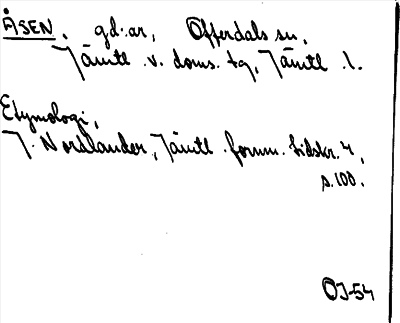 ÅSEN. gd:ar, Offerdals sn,
Jämtl. v. doms. tg, Jämtl. l.
Etymologi,
J. Nordlander, Jämtl. fornm. tidskr. 4,
s. 100.
OJ-54